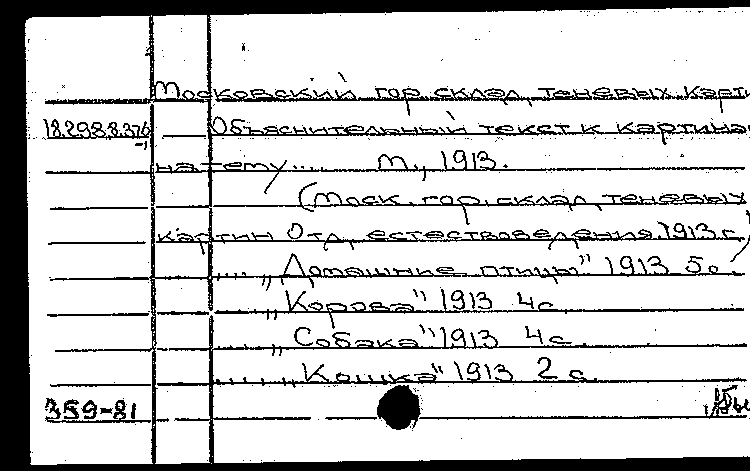 Московский гор. склад теневых карти
18.298.8.376 Объяснительный текст к картинам
-1
на тему.... М., 1913.
(Моск. гор. склад теневых
картин Отд. естествоведения. 1913 г.)
.... "Домашние птицы" 1913 5с.
.... "Корова" 1913 4с.
.... "Собака" 1913 4с.
.... "Кошка" 1913 2с.
359-81